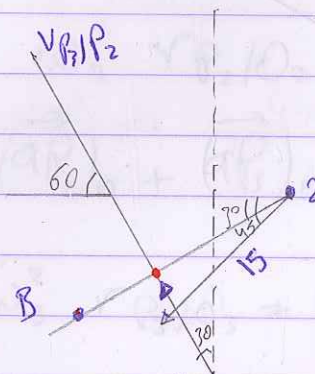 V P3/P2
60
2
30
45
15
B
30